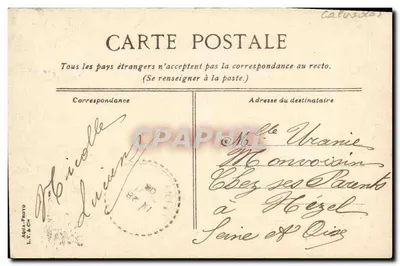 Calvados
CARTE POSTALE
Tous les pays étrangers n'acceptent pas la correspondance au recto.
(Se renseigner à la poste.)
Correspondance
Adresse du destinataire
Nicolle
Lucien
14-28
CPARAMA
Mlle Uranie
Monvoisin
Chez ses Parents
à Hézel
Seine et Oise
AQUA-PHOTO
L. V. & Cie